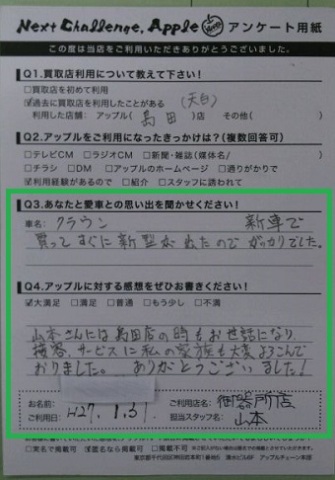 Next Challenge, Apple アンケート用紙
この度は当店をご利用いただきありがとうございました。
Q1.買取店利用について教えて下さい!
□買取店を初めて利用
☑過去に買取店を利用したことがある (天白)
利用した店舗: アップル( 島田 )店 その他( )
Q2.アップルをご利用になったきっかけは?(複数回答可)
□テレビCM □ラジオCM □新聞・雑誌(媒体名/ )
□チラシ □DM □アップルのホームページ □通りがかりで
☑利用経験があるので □紹介 □スタッフに誘われて
Q3.あなたと愛車との思い出を聞かせください!
車名: クラウン 新車で
買ってすぐに新型がでたので がっかりでした。
Q4.アップルに対する感想をぜひお書きください!
☑大満足 □満足 □普通 □もう少し □不満
山本さんには島田店の時もお世話になり
接客、サービスに私の家族も大変よろこんで
おりました。 ありがとうございました!
お名前:
ご利用店名: 御器所店
ご利用日: H27.1.31
担当スタッフ名: 山本
□実名で掲載可 ☑匿名なら掲載可 □掲載不可